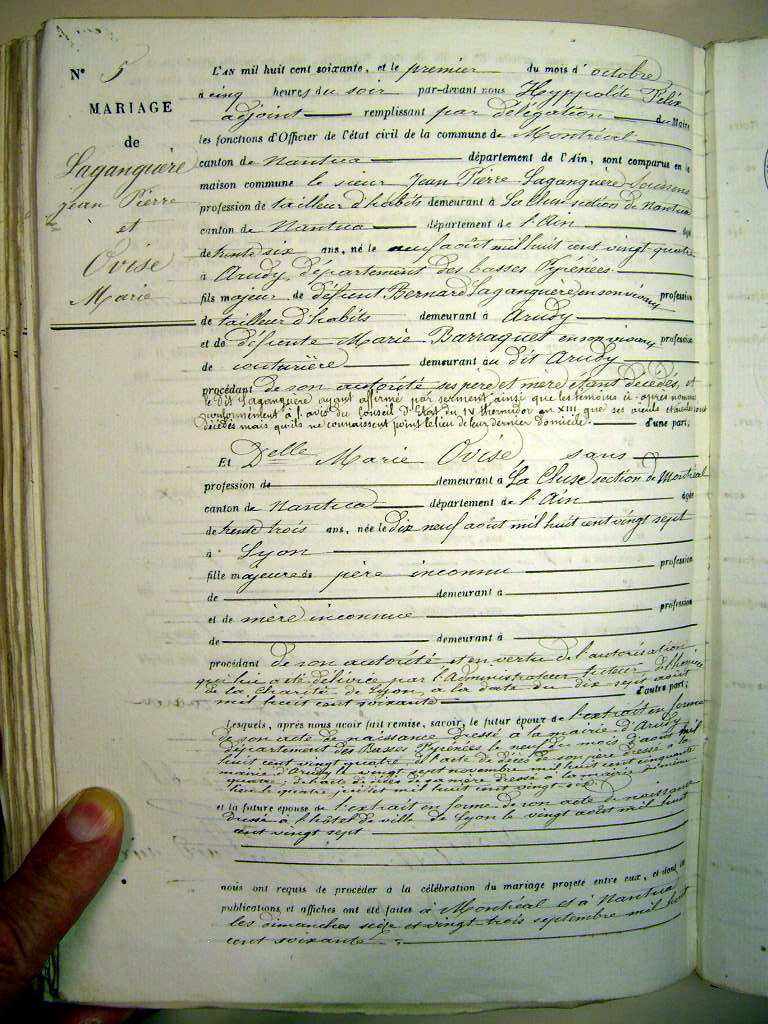 N° 5
MARIAGE
de
Laganguère
Jean Pierre
et
Ovise
Marie
L'AN mil huit cent soixante, et le premier du mois d'octobre
à cinq heures du soir par-devant nous Hyppolite Félix
adjoint remplissant par délégation du Maire
les fonctions d'Officier de l'état civil de la commune de Montréal
canton de Nantua département de l'Ain, sont comparus en la
maison commune le sieur Jean Pierre Laganguère
profession de tailleur d'habits demeurant à La Cluse section de Nantua
canton de Nantua département de l'Ain âgé
de trente six ans, né le neuf août mil huit cent vingt quatre
à Arudy, département des basses Pyrénées
fils majeur de défunt Bernard Laganguère en son vivant profession
de tailleur d'habits demeurant à Arudy
et de défunte Marie Barraquet en son vivant profession
de couturière demeurant au dit Arudy
procédant de son autorité ses père et mère étant décédés, et
le dit Laganguère ayant affirmé par serment ainsi que les témoins ci-après nommés
conformément à l'avis du Conseil d'Etat du IV thermidor an XIII que ses aieuls et aieules sont
décédés mais qu'ils ne connaissent point le lieu de leur dernier domicile. d'une part;
Et Delle Marie Ovise sans
profession de demeurant à La Cluse section de Montréal
canton de Nantua département de l'Ain âgée
de trente trois ans, née le dix neuf août mil huit cent vingt sept
à Lyon
fille majeure de père inconnu profession
de demeurant à
et de mère inconnue profession
de demeurant à
procédant de son autorité et en vertu de l'autorisation
qui lui a été délivrée par l'Administrateur tuteur
de la Charité de Lyon, à la date du dix sept août
mil huit cent soixante d'autre part;
Lesquels, après nous avoir fait remise, savoir, le futur époux de l'extrait en forme
de son acte de naissance dressé à la mairie d'Arudy
département des Basses Pyrénées le neuf du mois d'août mil
huit cent vingt quatre, et l'acte de décès de son père dressé à la
mairie d'Arudy le vingt sept novembre mil huit cent cinquante
quatre; de l'acte de décès de sa mère dressé à la mairie
lieu le quatre juillet mil huit cent vingt six
et la future épouse de l'extrait en forme de son acte de naissance
dressé à l'hôtel de ville de Lyon le vingt août mil huit
cent vingt sept
nous ont requis de procéder à la célébration du mariage projeté entre eux, et dont les
publications et affiches ont été faites à Montréal et à Nantua
les dimanches seize et vingt trois septembre mil huit
cent soixante